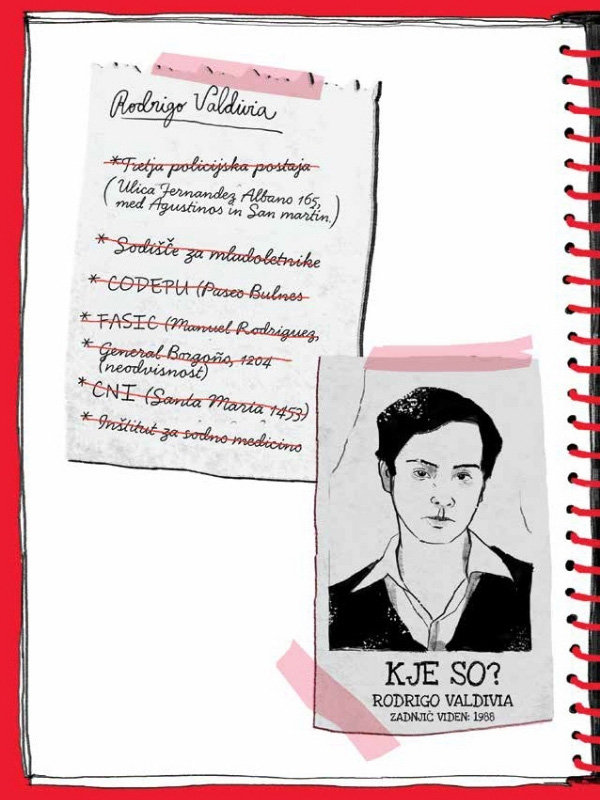 Rodrigo Valdivia
* Tretja policijska postaja
(Ulica Fernandez Albano 165,
med Agustinos in San martin.)
* Sodišče za mladoletnike
* CODEPU (Paseo Bulnes
* FASIC (Manuel Rodriguez,
* General Borgoño, 1204
(neodvisnost)
* CNI (Santa Marta 1453)
* Inštitut za sodno medicino
KJE SO?
RODRIGO VALDIVIA
ZADNJIČ VIDEN: 1988